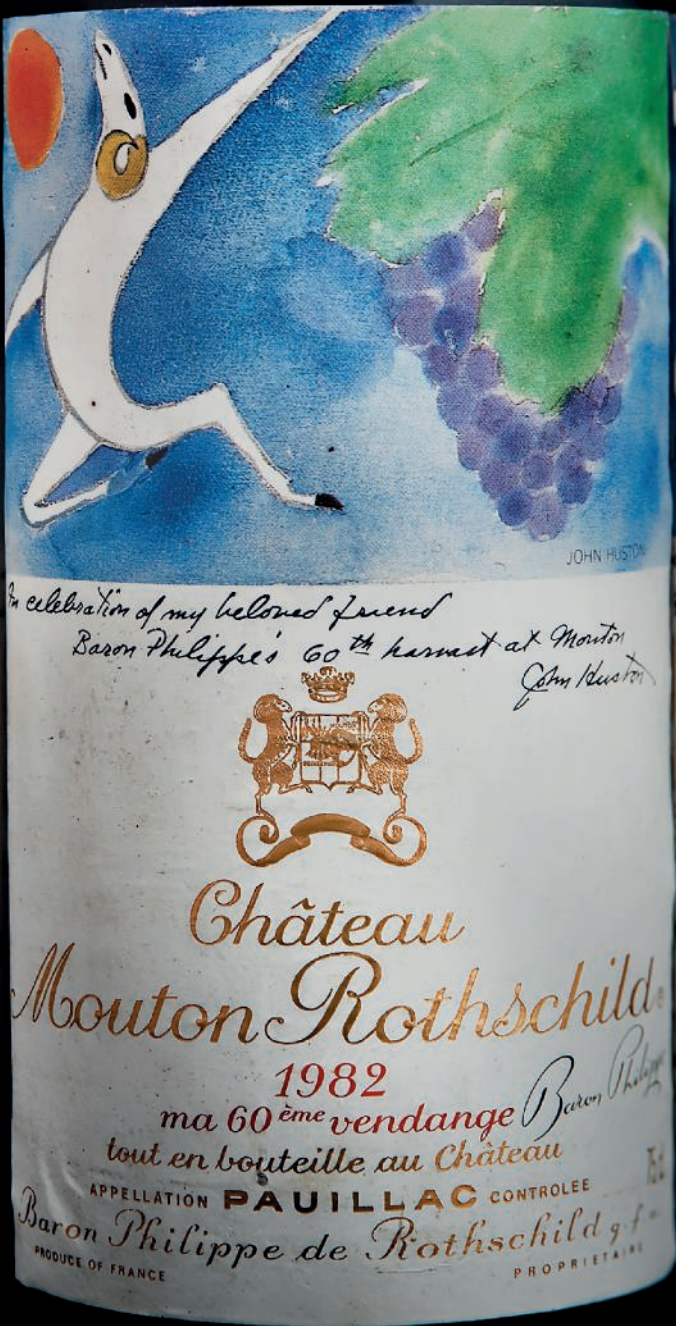 JOHN HUSTON
In celebration of my beloved friend
Baron Philippe's 60th harvest at Mouton
John Huston
Château
Mouton Rothschild
1982
ma 60ème vendange Baron Philippe
tout en bouteille au Château
75cl
APPELLATION PAUILLAC CONTROLEE
Baron Philippe de Rothschild g.f.a.
PRODUCE OF FRANCE
PROPRIETAIRE